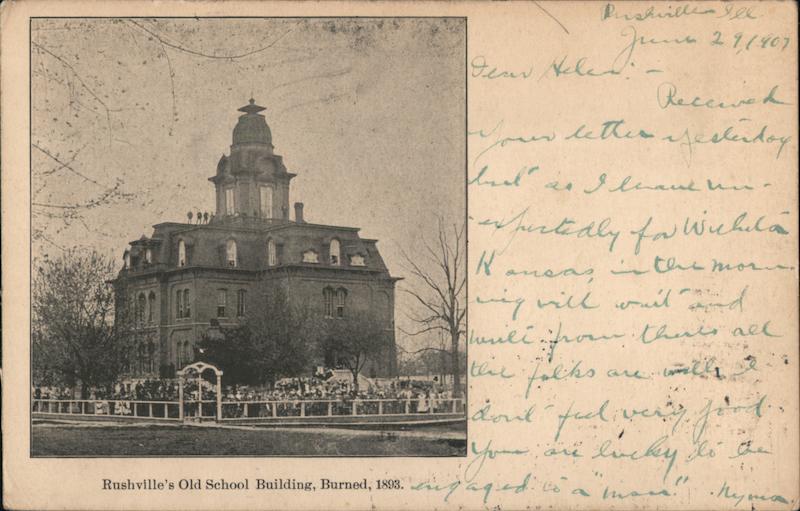 Rushville Ill
June 29, 1907
Dear Helen: -
Received
your letter yesterday
but as I leave un-
expectedly for Wichita
Kansas, in the morn-
ing will wait and
write from there all
the folks are well I
don't feel very good
You are lucky to be
engaged to a "man". Myrna
Rushville's Old School Building, Burned, 1893.